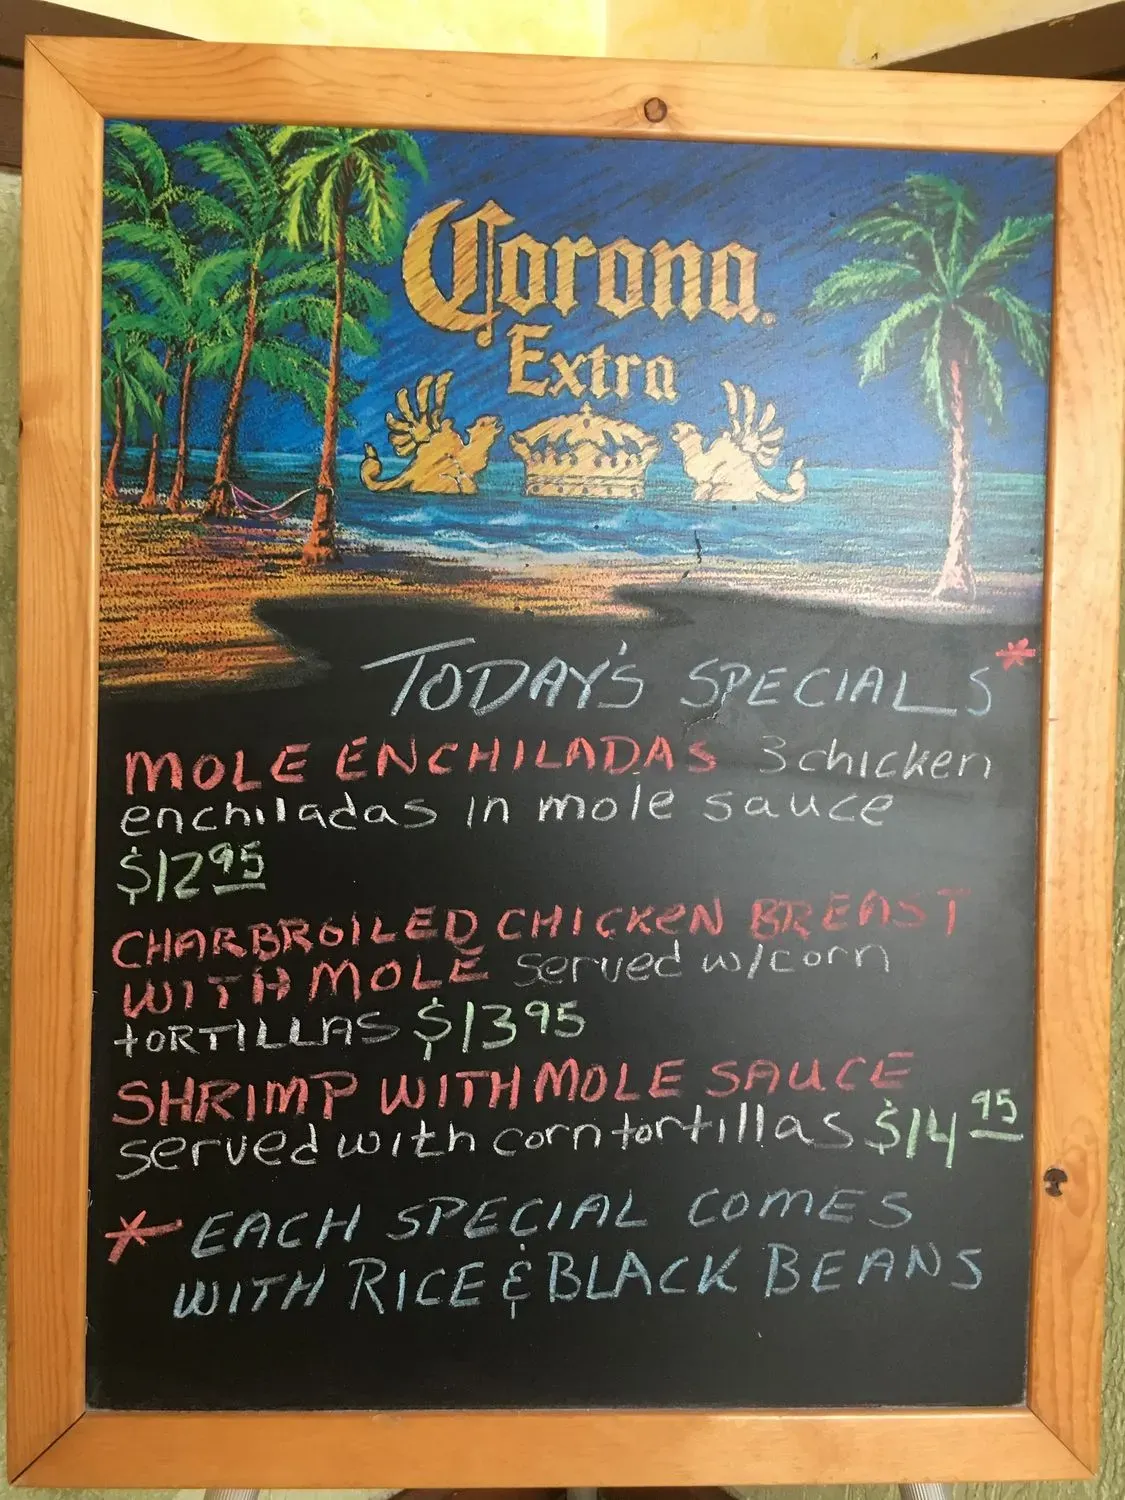 Corona
Extra
TODAY'S SPECIALS*
MOLE ENCHILADAS 3 chicken
enchiladas in mole sauce
$12 95
CHARBROILED CHICKEN BREAST
WITH MOLE served w/corn
tORTILLAS $13 95
SHRIMP WITH MOLE SAUCE
served with corn tortillas $14 95
* EACH SPECIAL COMES
WITH RICE & BLACK BEANS